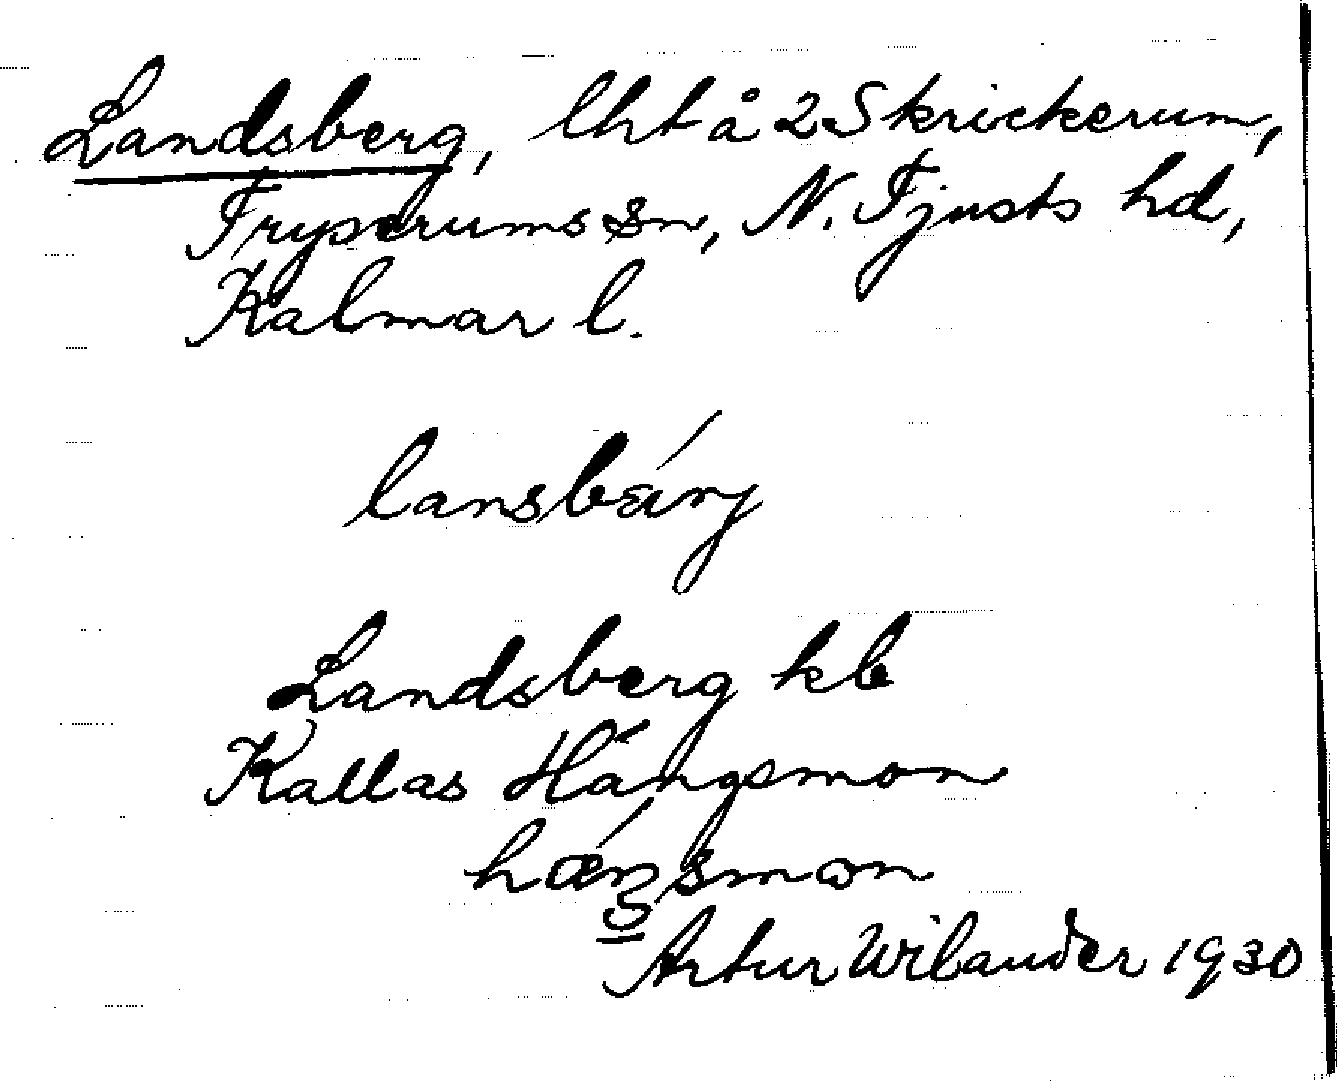 Landsberg, lht å 2 Skrickerum,
Tryserums sn, N. Tjusts hd,
Kalmar l.
lansbä́rj
Landsberg kb
Kallas Hängsmon
Artur Wilander 1930